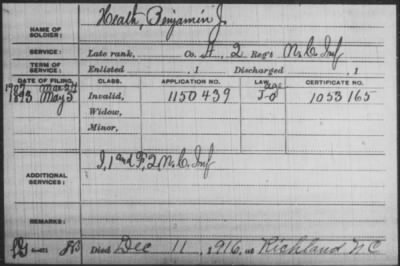 NAME OF SOLDIER: Heath, Benjamin J.
SERVICE: Late rank, Co. A, 2 Reg't N.C. Inf
TERM OF SERVICE: Enlisted , 1 Discharged , 1
DATE OF FILING. CLASS. APPLICATION NO. LAW. CERTIFICATE NO.
1907 Mar 27
1893 May 5 Invalid, 1150439 J-O 1053165
Widow,
Minor,
ADDITIONAL SERVICES: I, 1 and F, 2 N.C. Inf
REMARKS:
Died Dec 11, 1916, at Richland N C